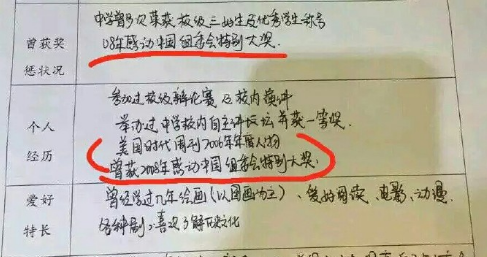 曾获奖
惩状况
中学曾多次荣获校级三好生及优秀学生称号
08年感动中国组委会特别大奖.
个人
经历
参加过校级辩论赛及校内演讲
举办过中学校内自主讲坛并获一等奖.
美国时代周刊2006年年度人物
曾获2008年感动中国组委会特别大奖.
爱好
特长
曾经学过九年绘画(以国画为主)、爱好阅读、电影、动漫
各种剧,喜欢了解欧文化